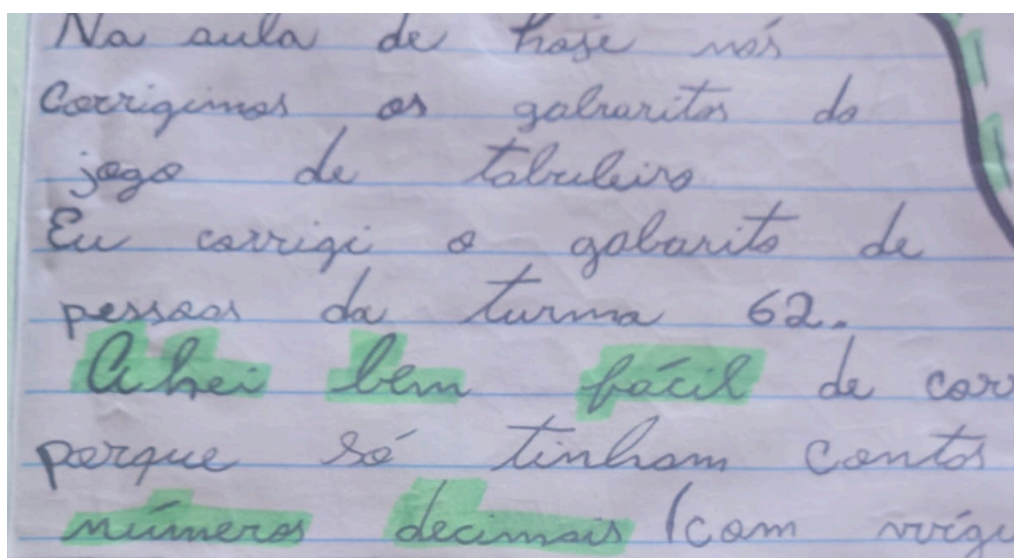 Na aula de hoje nós
Corrigimos os gabaritos do
jogo de tabuleiro
Eu corrigi o gabarito de
pessoas da turma 62.
Achei bem fácil de cor
porque só tinham contas
números decimais (com vírgu